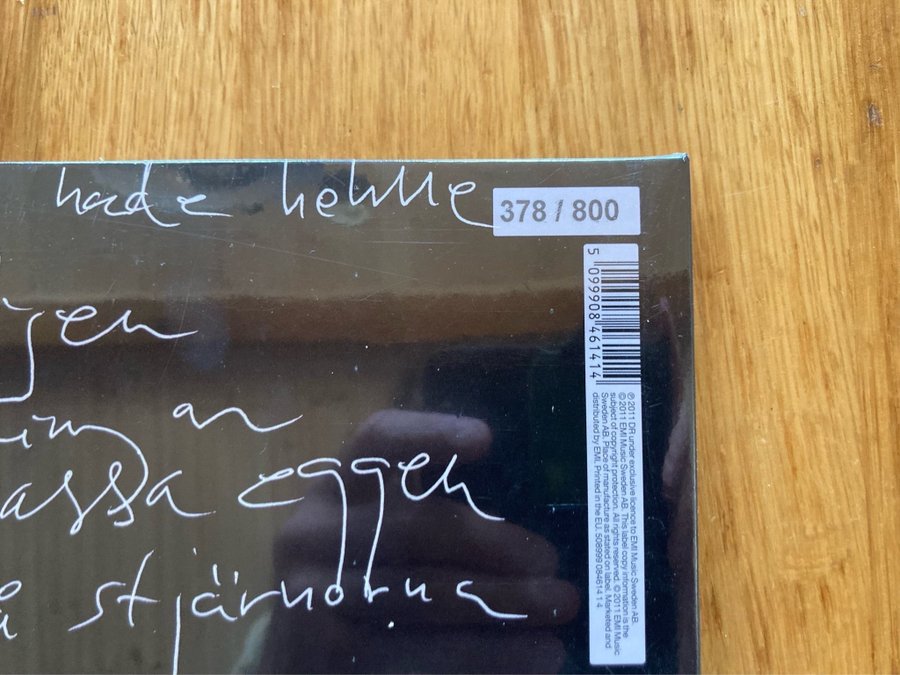 hade
378 / 800
an
assa eggen
stjärnorna
5 099908 461414
℗ 2011 DR under exclusive licence to EMI Music Sweden AB.
© 2011 EMI Music Sweden AB. This label copy information is the
subject of copyright protection. All rights reserved. © 2011 EMI Music
Sweden AB. Place of manufacture as stated on label. Marketed and
distributed by EMI. Printed in the EU. 508999 084614 1 4